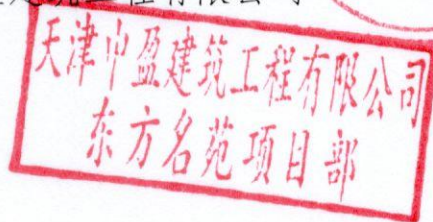 建筑工程有限公司
天津中盈建筑工程有限公司
东方名苑项目部